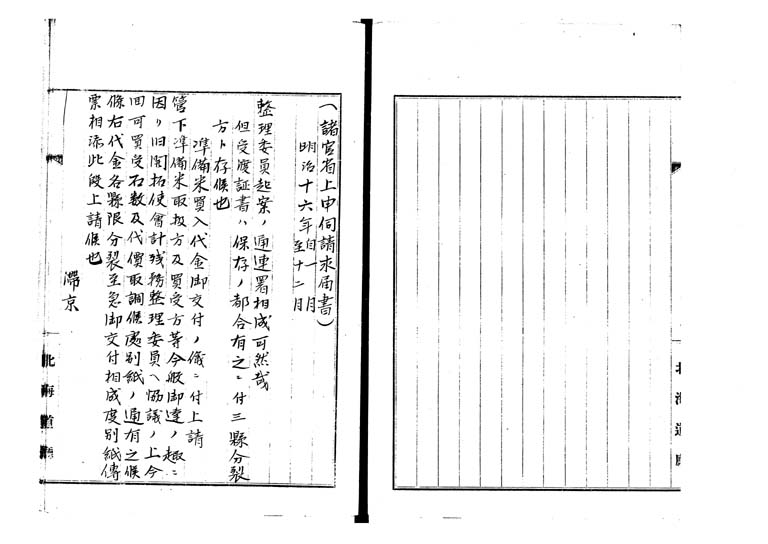 (諸官省上申伺請求局書)
明治十六年自一月
至十二月
整理委員起案ノ通連署相成可然哉
但受渡証書ハ保存ノ都合有之ニ付三縣分裂
方ト存候也
準備米買入代金御交付ノ儀ニ付上請
管下準備米取扱方及買受方等今般御達ノ趣ニ
因リ旧開拓使會計残務整理委員ヘ協議ノ上今
間可買受石数及代價取調候處別紙ノ通有之候
條右代金各縣限分裂至急御交付相成度別紙傳
票相添此段上請候也
滞京
北海道廳
北海道廳